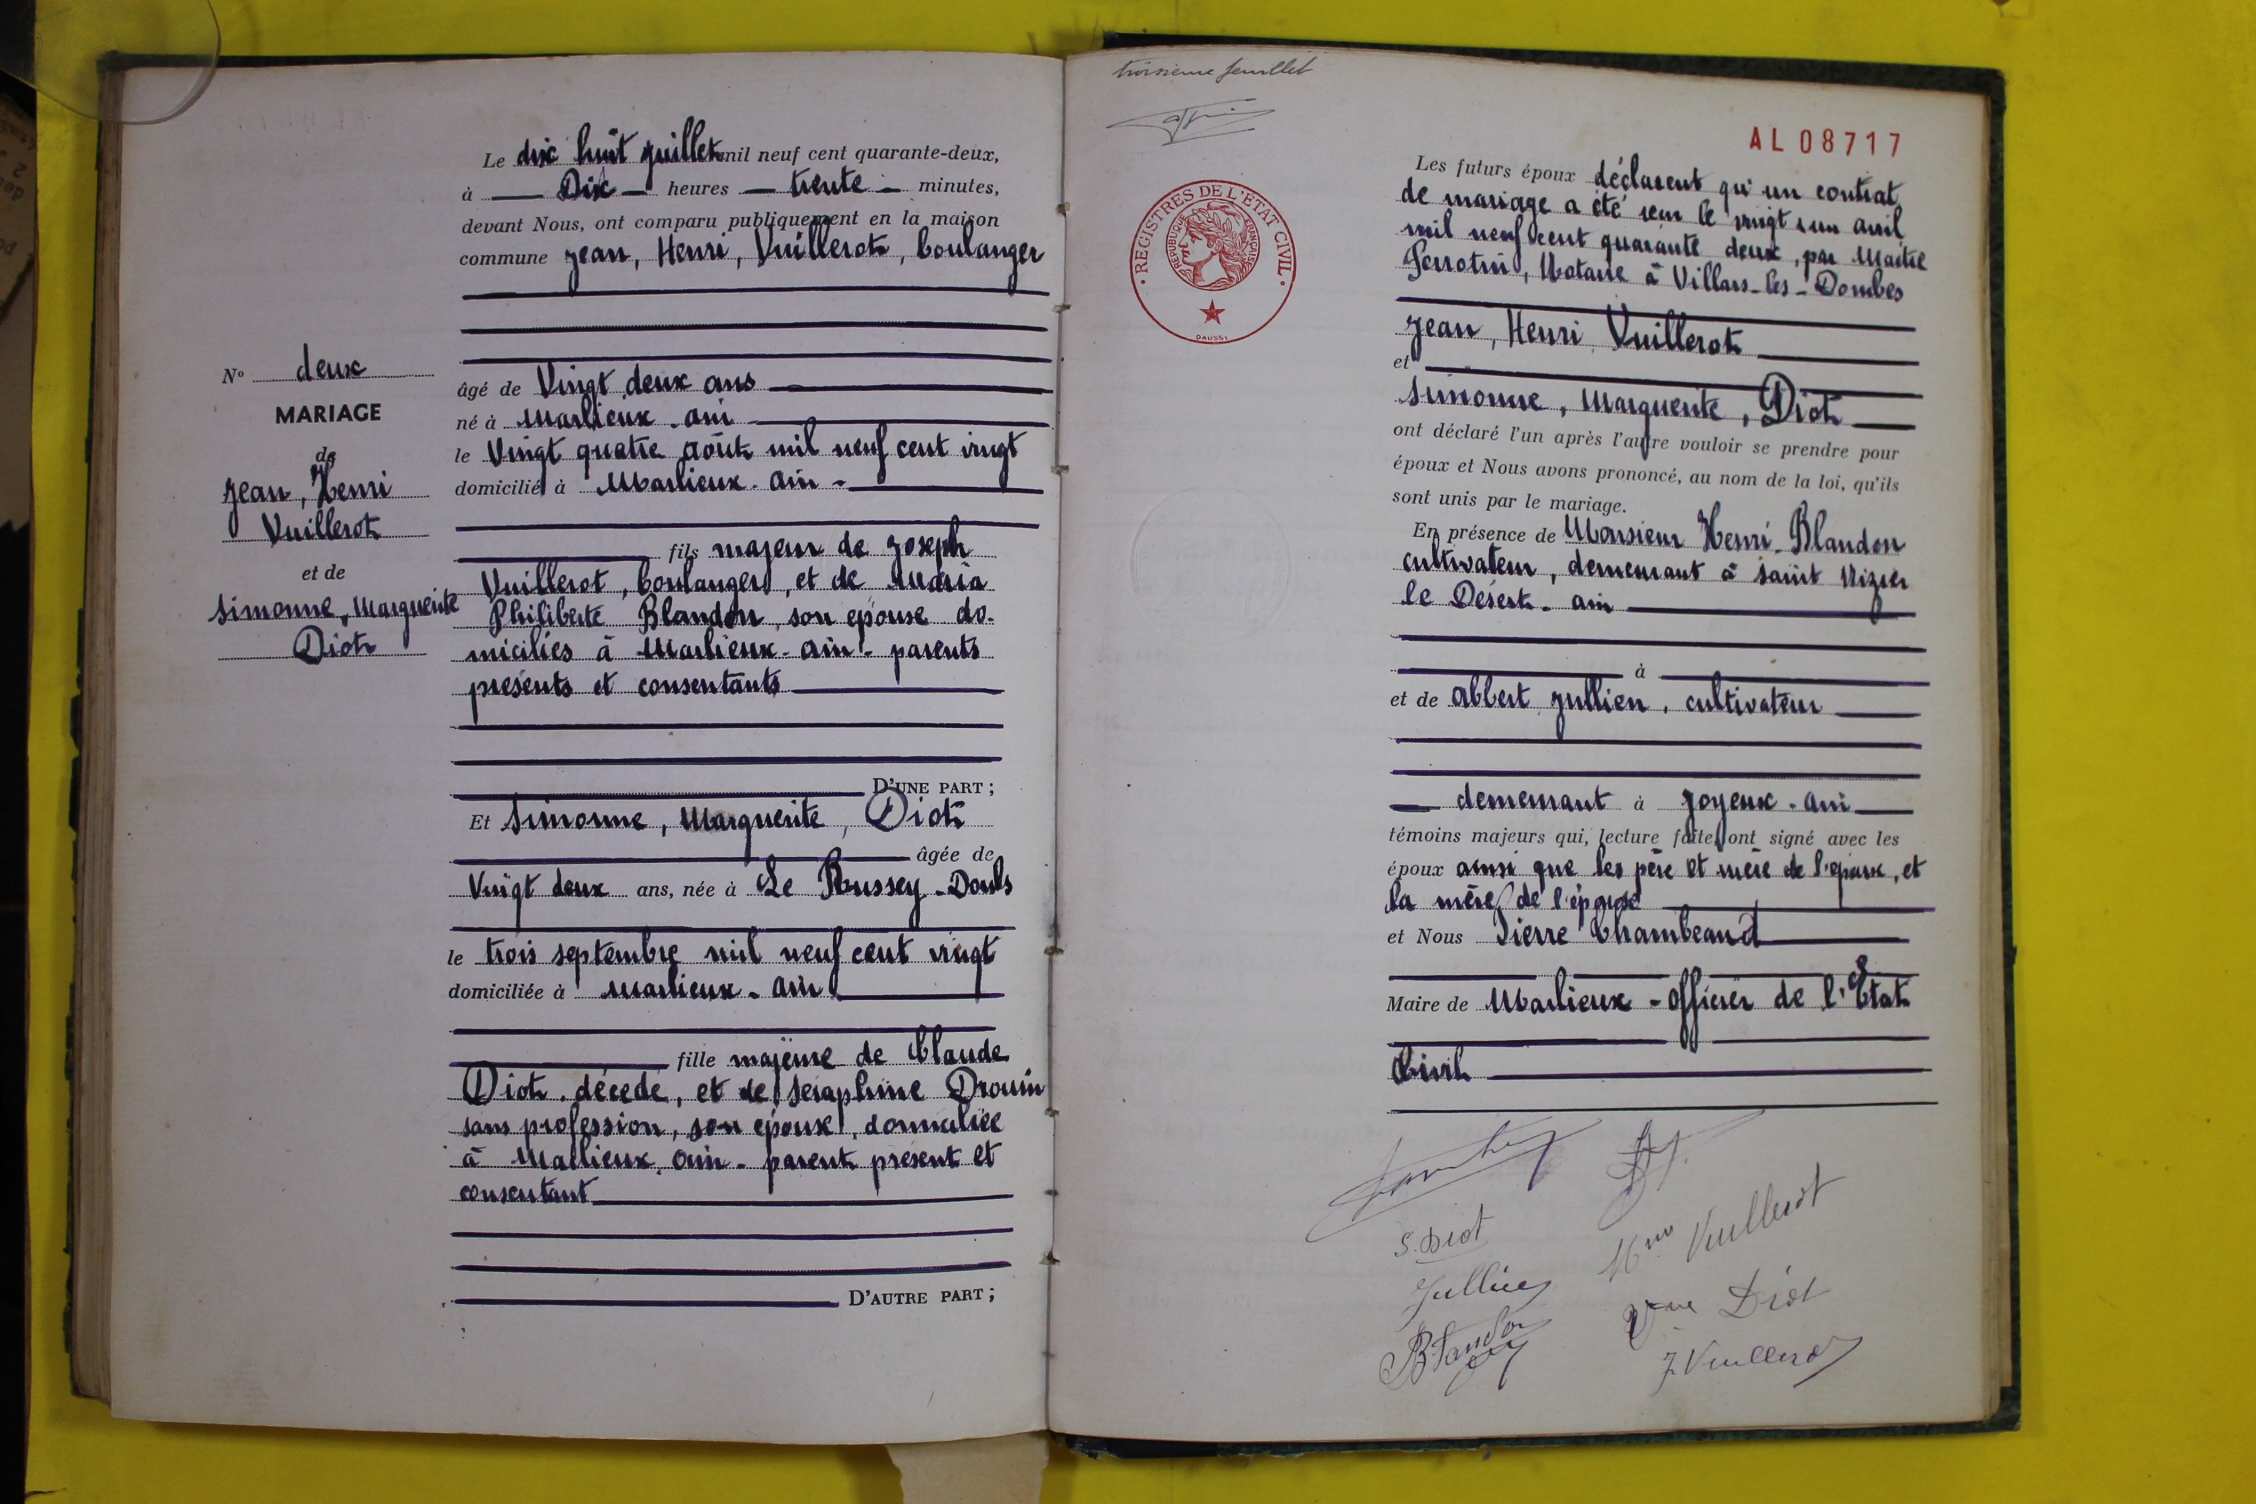 Le dix huit juillet mil neuf cent quarante-deux,
à Dix heures trente minutes,
devant Nous, ont comparu publiquement en la maison
commune Jean, Henri, Vuillerot, boulanger
âgé de Vingt deux ans
né à Marlieux - ain
le Vingt quatre août mil neuf cent vingt
domicilié à Marlieux - ain -
fils majeur de Joseph
Vuillerot, boulanger, et de Maria
Philiberte Blandon, son épouse do-
miciliés à Marlieux - ain - parents
présents et consentants
D'UNE PART ;
Et Simonne, Marguerite, Diot
âgée de
Vingt deux ans, née à Le Russey - Doubs
le trois septembre mil neuf cent vingt
domiciliée à Marlieux - ain
fille majeure de Claude
Diot, décédé, et de Séraphine Drouin
sans profession, son époux, domiciliée
à Marlieux, ain - parent présent et
consentant
D'AUTRE PART ;
N° deux
MARIAGE
de
Jean, Henri
Vuillerot
et de
Simonne, Marguerite
Diot
troisième feuillet
AL 08717
REGISTRES DE L'ETAT CIVIL
REPUBLIQUE FRANÇAISE
DAUSSY
Les futurs époux déclarent qu'un contrat
de mariage a été reçu le vingt un avril
mil neuf cent quarante deux, par Maître
Perrotin, Notaire à Villars-les-Dombes
Jean, Henri Vuillerot
et
Simonne, Marguerite, Diot
ont déclaré l'un après l'autre vouloir se prendre pour
époux et Nous avons prononcé, au nom de la loi, qu'ils
sont unis par le mariage.
En présence de Monsieur Henri - Blandon
cultivateur, demeurant à Saint Nizier
le Désert - ain
à
et de Albert Jullien, cultivateur
demeurant à Joyeux - ain
témoins majeurs qui, lecture faite, ont signé avec les
époux ainsi que les père et mère de l'époux, et
la mère de l'épouse
et Nous Pierre Chambeaud
Maire de Marlieux - officier de l'Etat
Civil
S. Diot
Mme Vuillerot
Jullien
Vve Diot
Blandon
J. Vuillerot